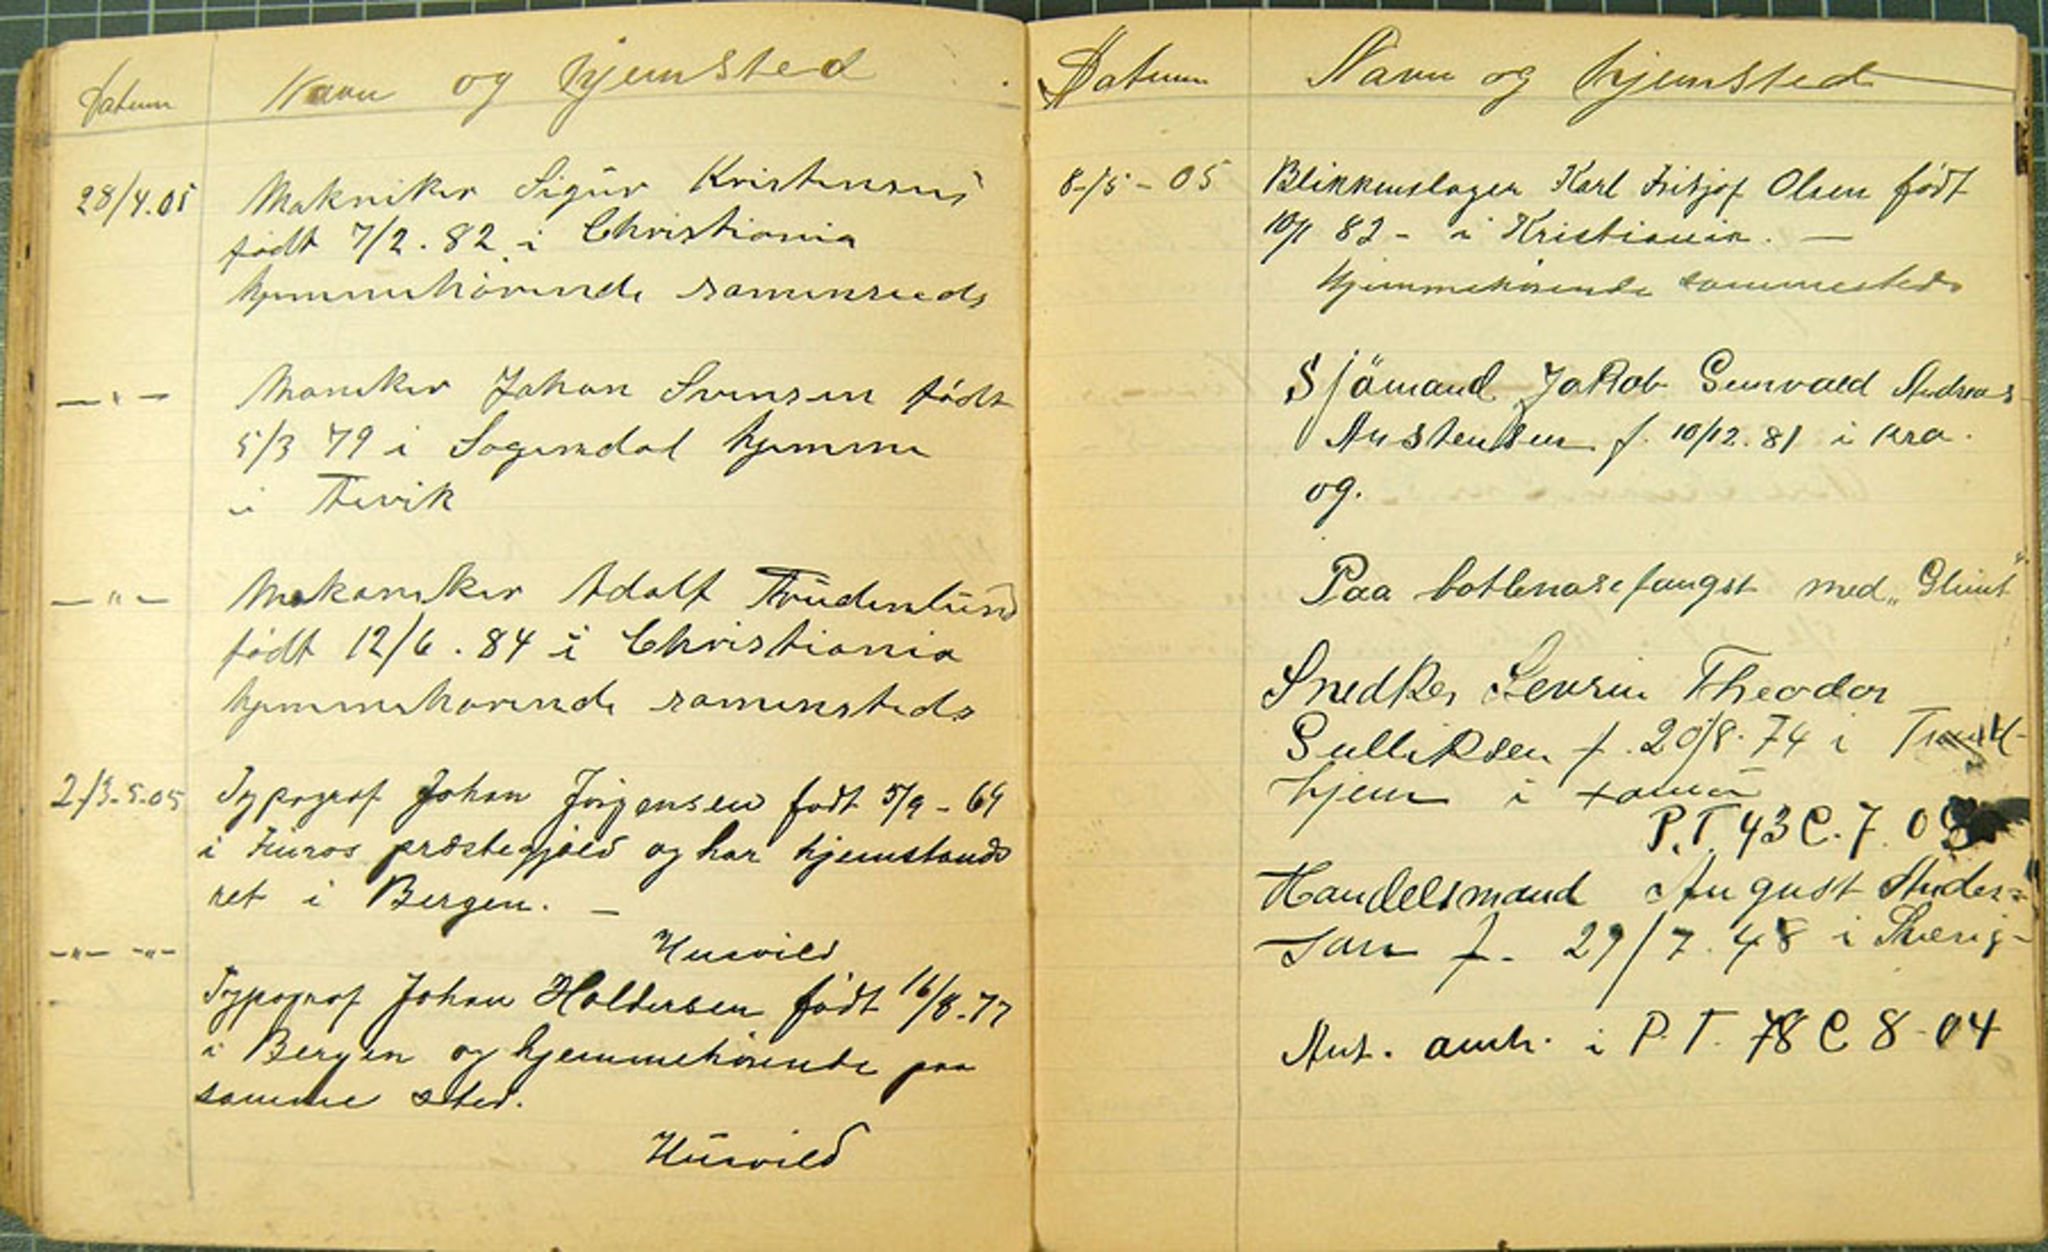 Datum Navn og hjemsted
28/4.05 Mekniker Sigur Kristensen
født 7/2. 82 i Christiania
hjemmehørende sammesteds
—"— Maniker Johan Svensen født
5/3 79 i Sogendal hjemme
i
—"— Mekaniker Adolf Frudenlund
født 12/6. 84 i Christiania
hjemmehørende sammensteds
2/3-5-05 Typograf Johan Jörgensen født 5/9 - 69
i præstegjæld og har hjemstavds
ret i Bergen. —
Husvild
—"— —"— Typograf Johan Haldersen født 16/8-77
i Bergen og hjemmehörende paa
samme sted.
Husvild
Datum Navn og hjemsted
8-/5 - 05 Blikkenslager Karl Fritjof Olsen født
10/1 82 - i Kristiania. —
hjemmehörende sammesteds
Sjömand Jakob Gunvald Andreas
Austensen f. 10/12. 81 i Kra.
og.
Paa botlenosefangst med „Glimt"
Snedker Sevrin Theodor
Gulliksen f. 20/8. 74 i
hjem i
P.T. 43 C. 7. 05
Handelsmand August Ander=
son f. 29/7. 48 i Sverig-
Ant. anh. i P.T. 78 C 8-04